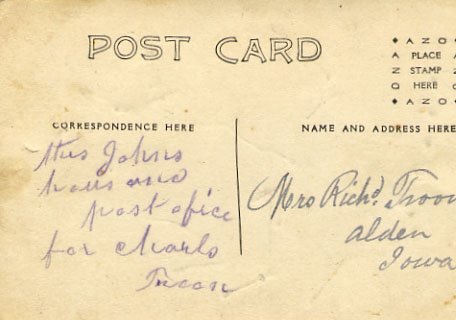 POST CARD
AZO
A PLACE A
Z STAMP Z
O HERE O
AZO
CORRESPONDENCE HERE
this Johns
hous and
post ofice
for Charls
NAME AND ADDRESS HERE
Mrs Richd.
alden
Iowa